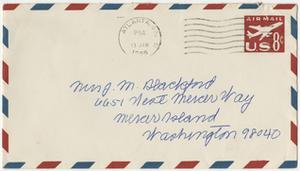 ATLANTA, GA.
PM
11 JAN
AIR MAIL
US 8c
Mrs J. M. Blackford
6651 West Mercer Way
Mercer Island
Washington 98040